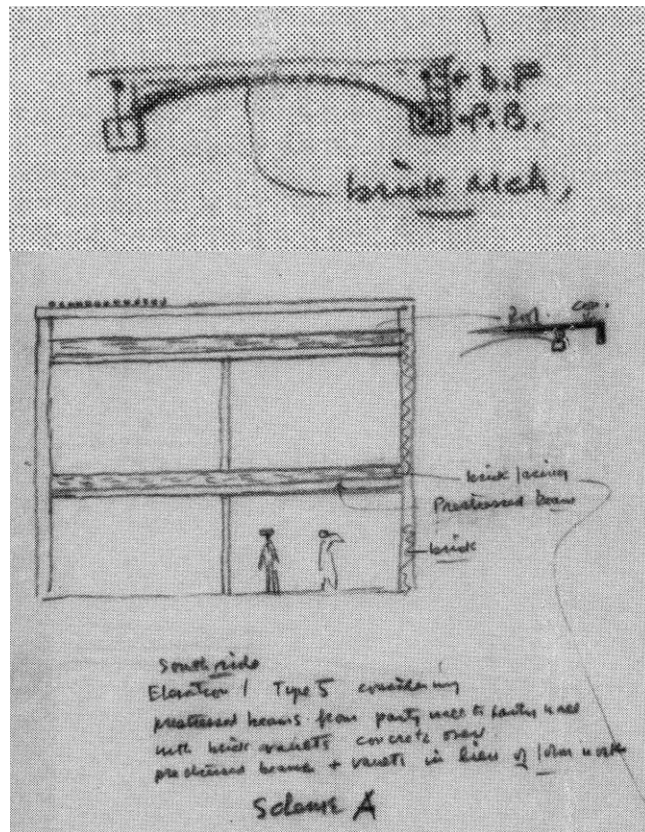 b.F
P.B.
brick arch,
cop.
brick facing
Prestressed beam
brick
South side
Elevation / Type 5 considering
prestressed beams from party wall to party wall
with brick vaults concrete over
prestressed beams + vaults in lieu of form work
Scheme A